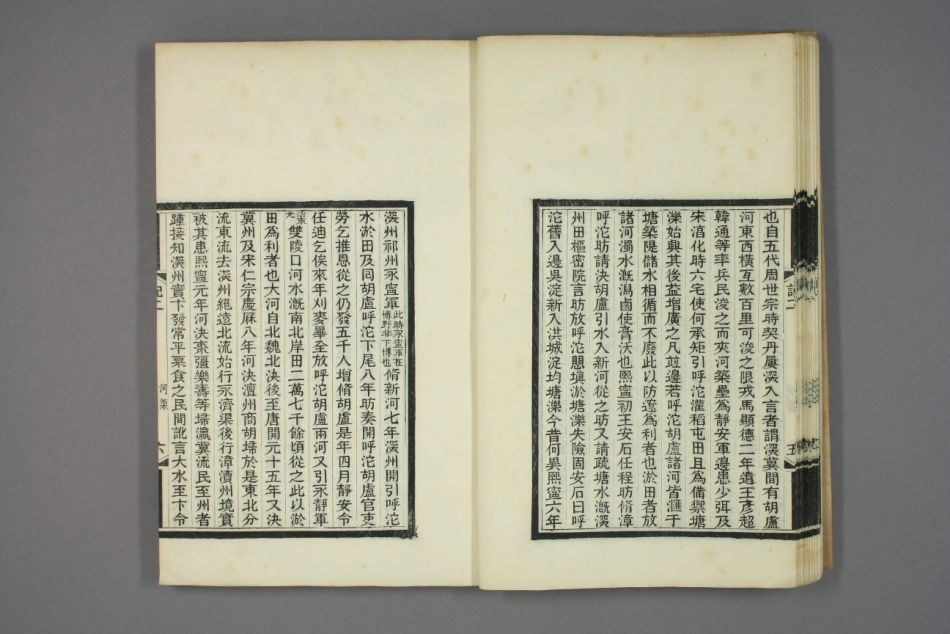 也自五代周世宗時契丹屢深入言者謂深冀間有胡盧
河東西橫亙數百里可浚之限戎馬顯德二年遣王彥超
韓通等率兵民浚之而夾河築壘為靜安軍邊患少弭及
宋淯化時六宅使何承矩引呼沱灌稻屯田且為備禦塘
濼始興其後益增廣之凡竝邊若呼沱胡盧諸河皆滙于
塘築隄儲水相循而不廢此以防遼為利者也淤田者放
諸河濁水漑潟鹵使膏沃也熙寧初王安石任程昉脩漳
呼沱昉請決胡盧引水入新河從之昉又請疏塘水漑深
州田樞密院言昉放呼沱恩塡淤塘濼失險固安石曰呼
沱舊入邊吳淀新入洪城淀均塘濼今昔何異熙寧六年
五
深州祁州永寧軍此時永寧軍在博野非下博也脩新河七年深州開引呼沱
水淤田及同胡盧呼沱下尾八年昉奏開呼沱胡盧官吏
勞乞推恩從之仍發五千人增脩胡盧是年四月靜安令
任迪乞俟來年刈麥畢全放呼沱胡盧兩河又引永靜軍
雙陵口河水漑南北岸田二萬七千餘頃從之此以淤
田為利者也大河自北魏北決後至唐開元十五年又決
冀州及宋仁宗慶厤八年河決澶州商胡埽於是東北分
流東流去深州絕遠北流始行永濟渠後行漳瀆州境實
被其患熙寧元年河決棗彊樂壽等埽瀛冀流民至州者
踵接知深州竇卞發常平粟食之民間訛言大水至卞令
記二
河渠
六